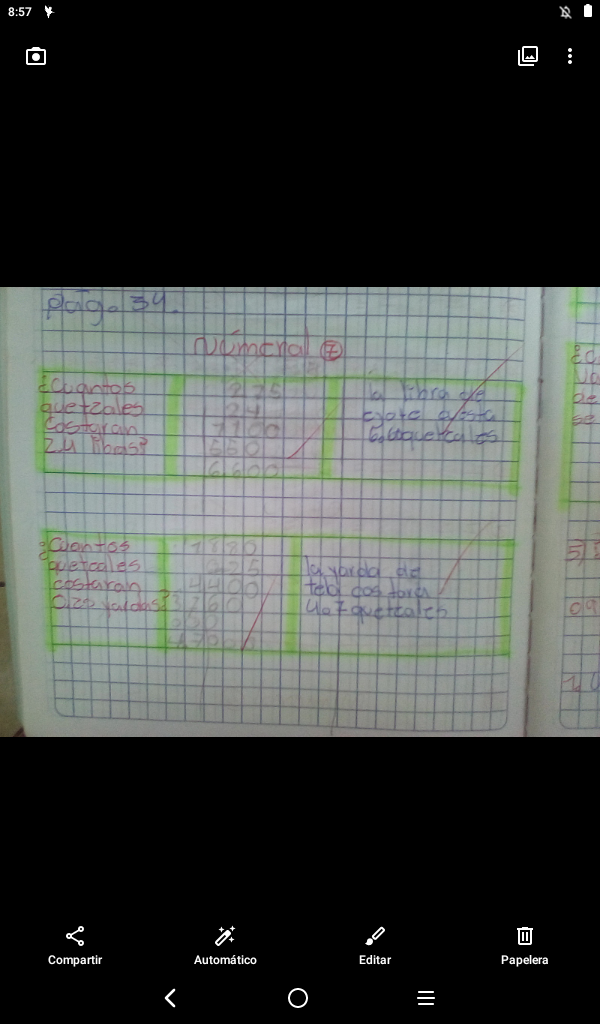 8:57
pág. 34.
Númeral 7
¿Cuantos
quetzales
costaran
24 libas?
275
24
1100
550
6600
la libra de
cuesta
quetzales
¿Cuantos
quetzales
costaran
yardas?
1880
225
4400
3760
la yarda de
tela costara
4.7 quetzales
Compartir
Automático
Editar
Papelera